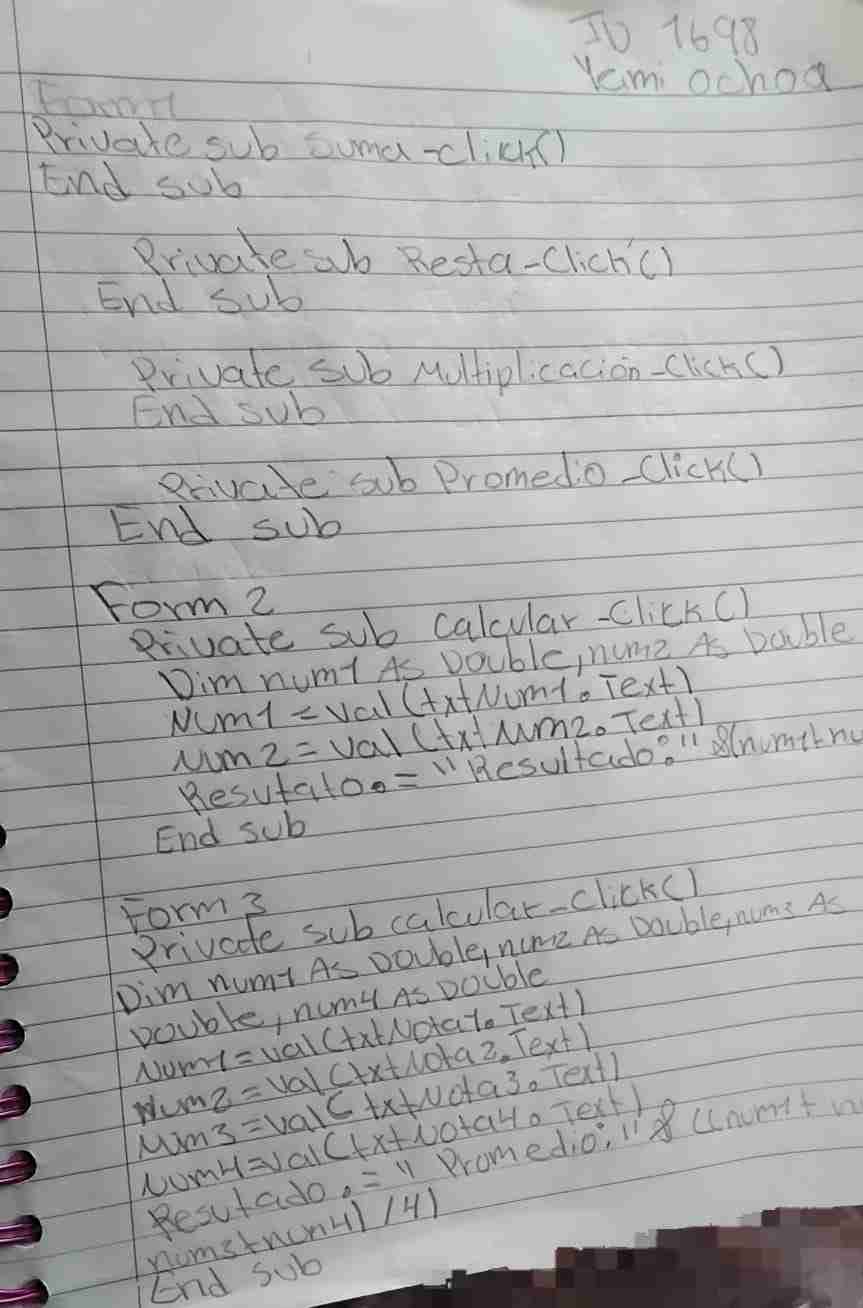 IU 1698
Yami ochoa
Form1
Private sub suma-click()
End sub
Private sub Resta-Click()
End sub
Private sub Multiplicación-Click()
End sub
Private sub Promedio-Click()
End sub
Form 2
Private sub calcular-Click()
Dim num1 As Double, num2 As Double
Num1 = val(txtNum1.Text)
Num2 = val(txtNum2.Text)
Resutato. = "Resultado:" &(num1+nu
End sub
Form 3
Private sub calcular-Click()
Dim num1 As Double, num2 As Double, num3 As
Double, num4 As Double
Num1 = val(txtNota1.Text)
Num2 = val(txtNota2.Text)
Num3 = val(txtNota3.Text)
Num4 = val(txtNota4.Text)
Resutado. = "Promedio:" & ((num1+
num3+num4)/4)
End sub